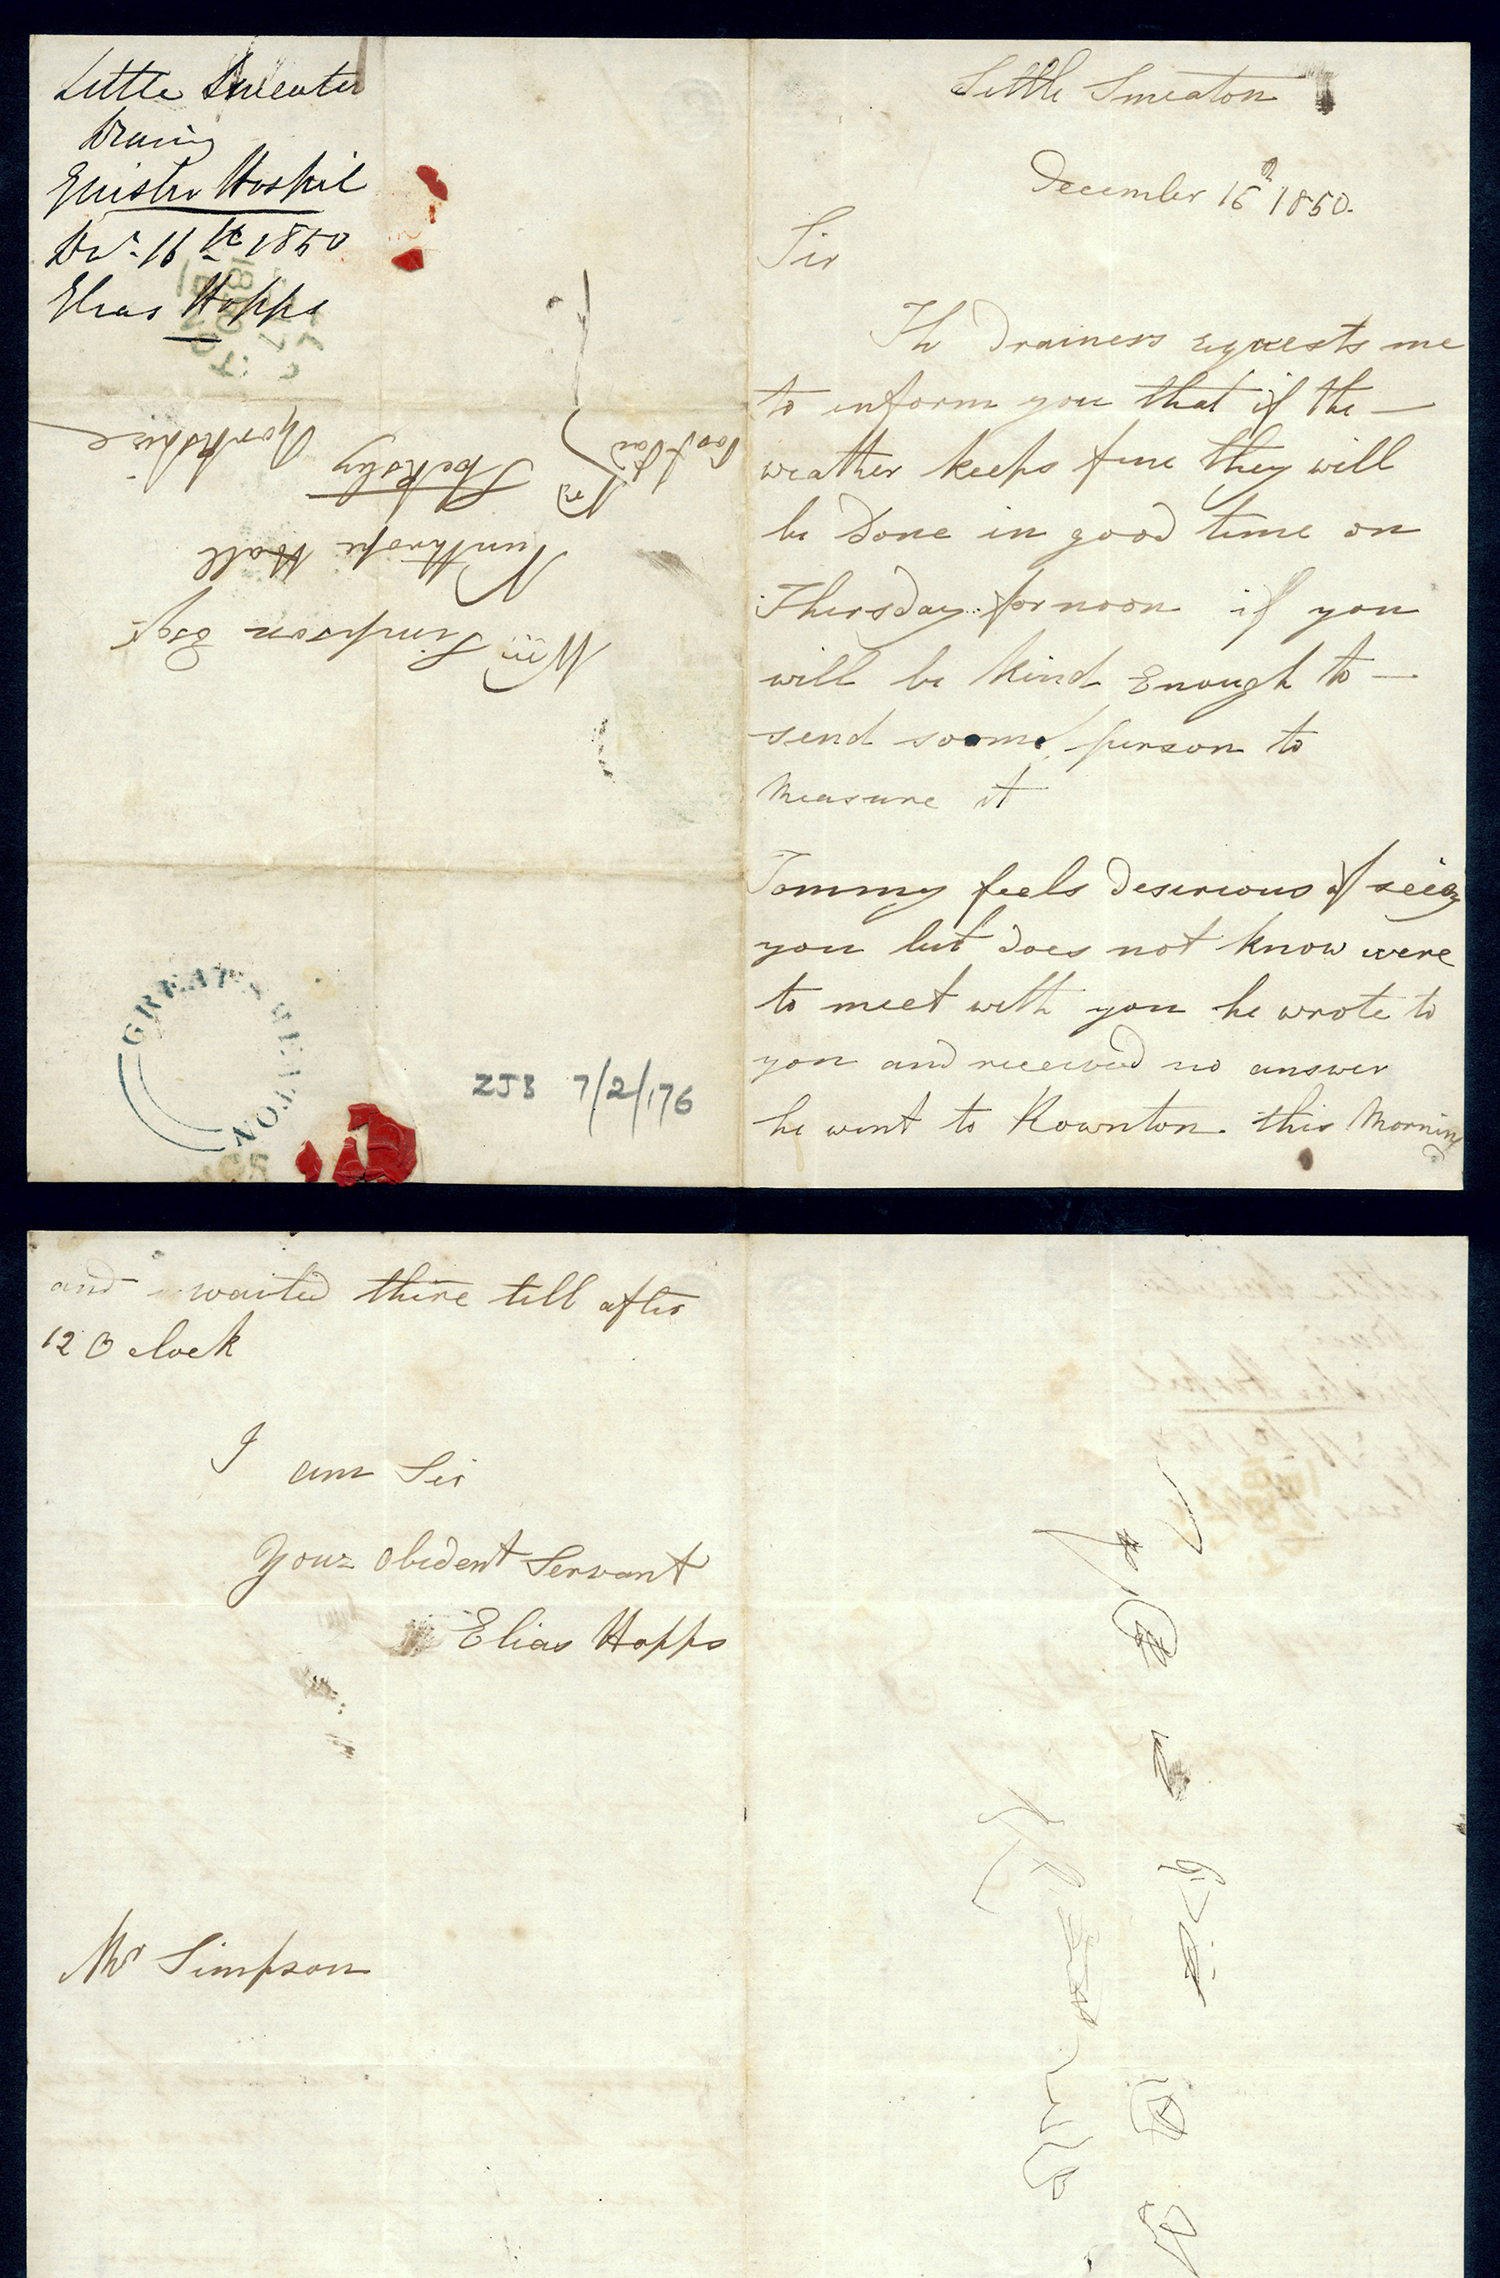 Little Smeaton
Draing
Hospil
Decr 16th 1850
Elias Hopps
Wm Simpson Esqr
Nunthrope Hall
Nr Stoksley Yorkshire
Post Paid
GREAT SMEATON
ZJB 7/2/176
Little Smeaton
December 16th 1850.
Sir
Th Drainers requests me
to inform you that if the —
weather keeps fine they will
be Done in good time on
Thersday for noon if you
will be kind Enough to —
send soome person to
Measure it
Tommy feels Desirious of seeig
you but does not know were
to meet with you he wrote to
you and received no answer
he went to Rownton this Morning
and waited there till after
12 O clock
I am Sir
Your Obident Servant
Elias Hopps
Mr Simpson